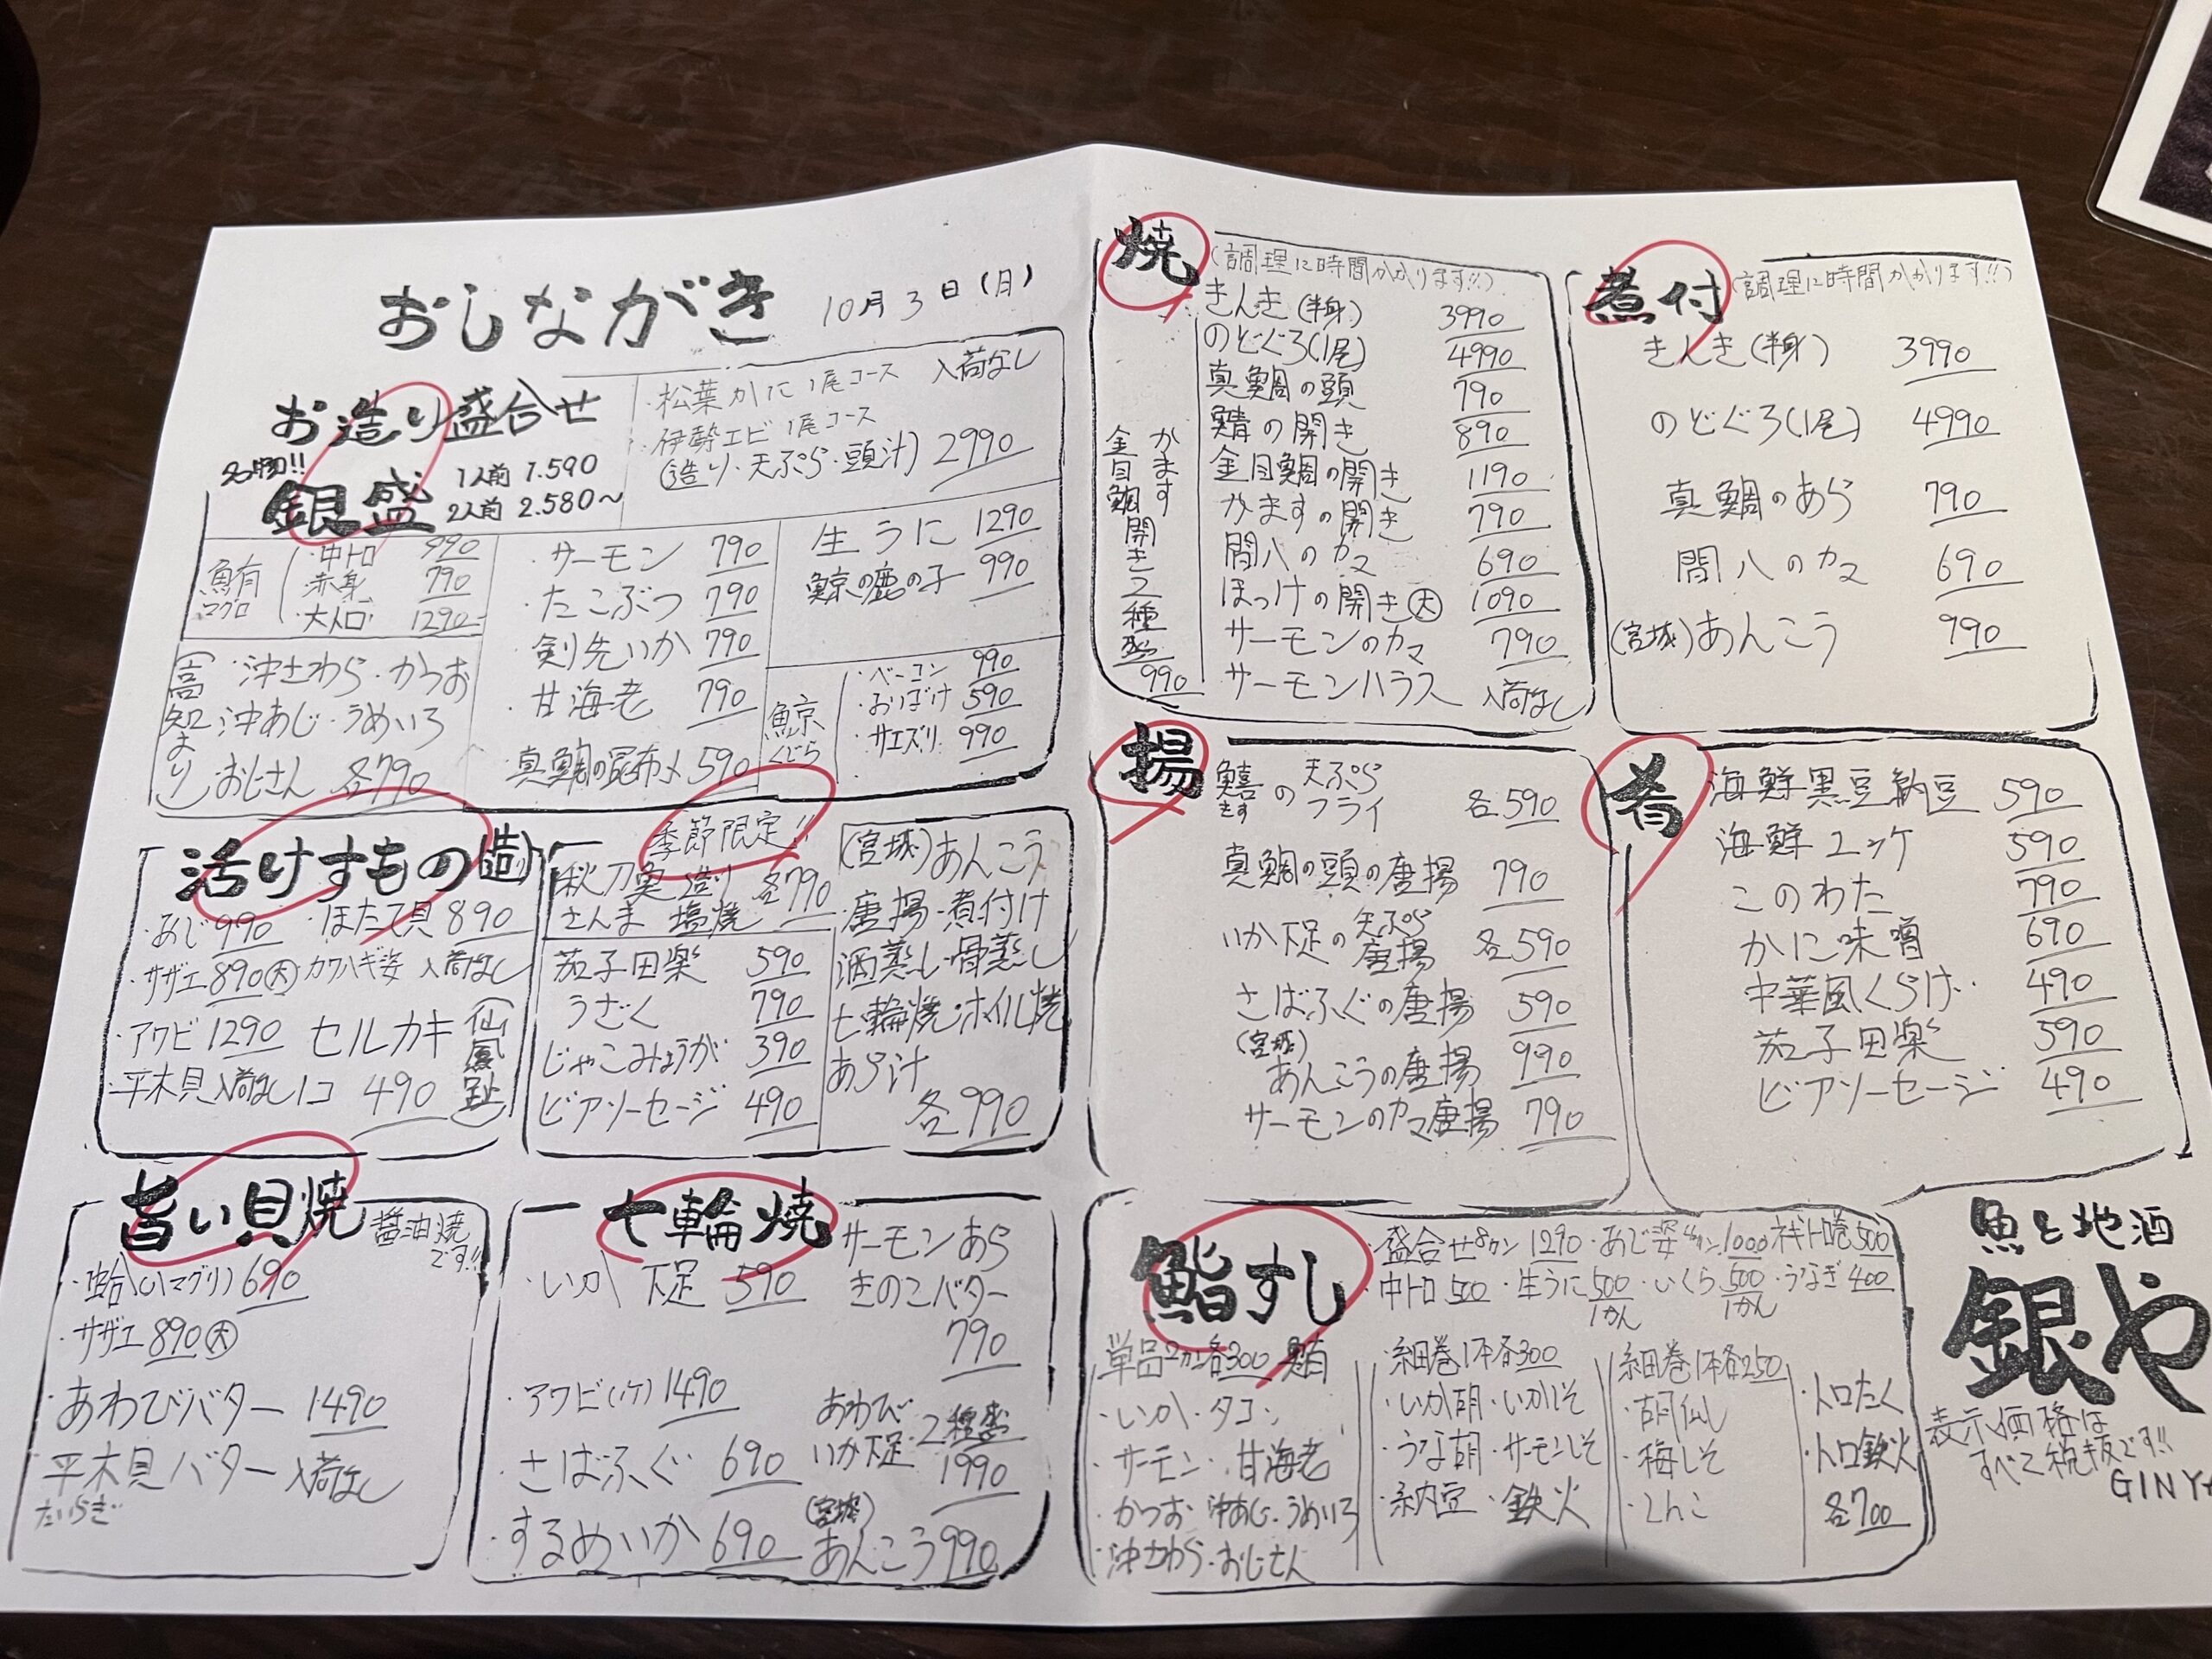 おしながき 10月3日(月)
お造り盛合せ
名物!!
銀盛 1人前 1.590
2人前 2.580〜
・松葉かに 1尾コース 入荷なし
・伊勢エビ 1尾コース
(造り・天ぷら・頭汁) 2990
鮪 マグロ
・中トロ 990
・赤身 790
・大トロ 1290
(高知より)
・沖さわら・かつお
沖あじ・うめいろ
・おじさん 各790
・サーモン 790
・たこぶつ 790
剣先いか 790
・甘海老 790
・真鯛の昆布〆 590
生うに 1290
鯨の鹿の子 990
鯨 くじら
・ベーコン 990
・おばけ 590
・サエズリ 990
活けすもの(造り)
・あじ 990 ・ほたて貝 890
・サザエ 890(大) カワハギ姿 入荷なし
・アワビ 1290 セルカキ (仙鳳趾)
・平木貝 入荷なし 1コ 490
季節限定!!
秋刀魚 造り 各790
さんま 塩焼
茄子田楽 590
うざく 790
じゃこみょうが 390
ビアソーセージ 490
(宮城)あんこう
・唐揚・煮付け
酒蒸し・骨蒸し
七輪焼・ホイル焼
あら汁
各990
旨い貝焼 醤油焼です!!
・蛤(ハマグリ) 690
・サザエ 890(大)
・あわびバター 1490
・平木貝バター 入荷なし
たいらぎ
七輪焼
・いか下足 590
サーモンあら
きのこバター
790
・アワビ(1ケ) 1490
・さばふぐ 690
・するめいか 690
あわび
いか下足 2種盛
1990
(宮城)
あんこう 990
焼 (調理に時間かかります!!)
きんき(半身) 3990
のどぐろ(1尾) 4990
真鯛の頭 790
鯖の開き 890
金目鯛の開き 1190
かますの開き 790
間八のカマ 690
ほっけの開き(大) 1090
サーモンのカマ 790
サーモンハラス 入荷なし
かます
金目鯛 開き2種盛
990
煮付 (調理に時間かかります!!)
きんき(半身) 3990
のどぐろ(1尾) 4990
真鯛のあら 790
間八のカマ 690
(宮城)あんこう 990
揚
鱚きすの 天ぷら フライ 各590
真鯛の頭の唐揚 790
いか下足の 天ぷら 唐揚 各590
さばふぐの唐揚 590
(宮城)
あんこうの唐揚 990
サーモンのカマ唐揚 790
肴
海鮮黒豆納豆 590
海鮮ユッケ 590
このわた 790
かに味噌 690
中華風くらげ 490
茄子田楽 590
ビアソーセージ 490
鮨すし
・盛合せ8カン 1290 ・あじ姿4カン 1000 ネギトロ巻 500
・中トロ 500 ・生うに 500 1かん ・いくら 500 1かん ・うなぎ 400
単品2カン各300 鮪
・いか・タコ
・サーモン・甘海老
・かつお 沖あじ・うめいろ
・沖さわら・おじさん
・細巻1本各300
・いか胡・いかしそ
・うな胡・サーモンしそ
・納豆・鉄火
細巻1本各250
・胡仙
・梅しそ
・しんこ
・トロたく
・トロ鉄火
各700
魚と地酒
銀や
表示価格は
すべて税抜です!!